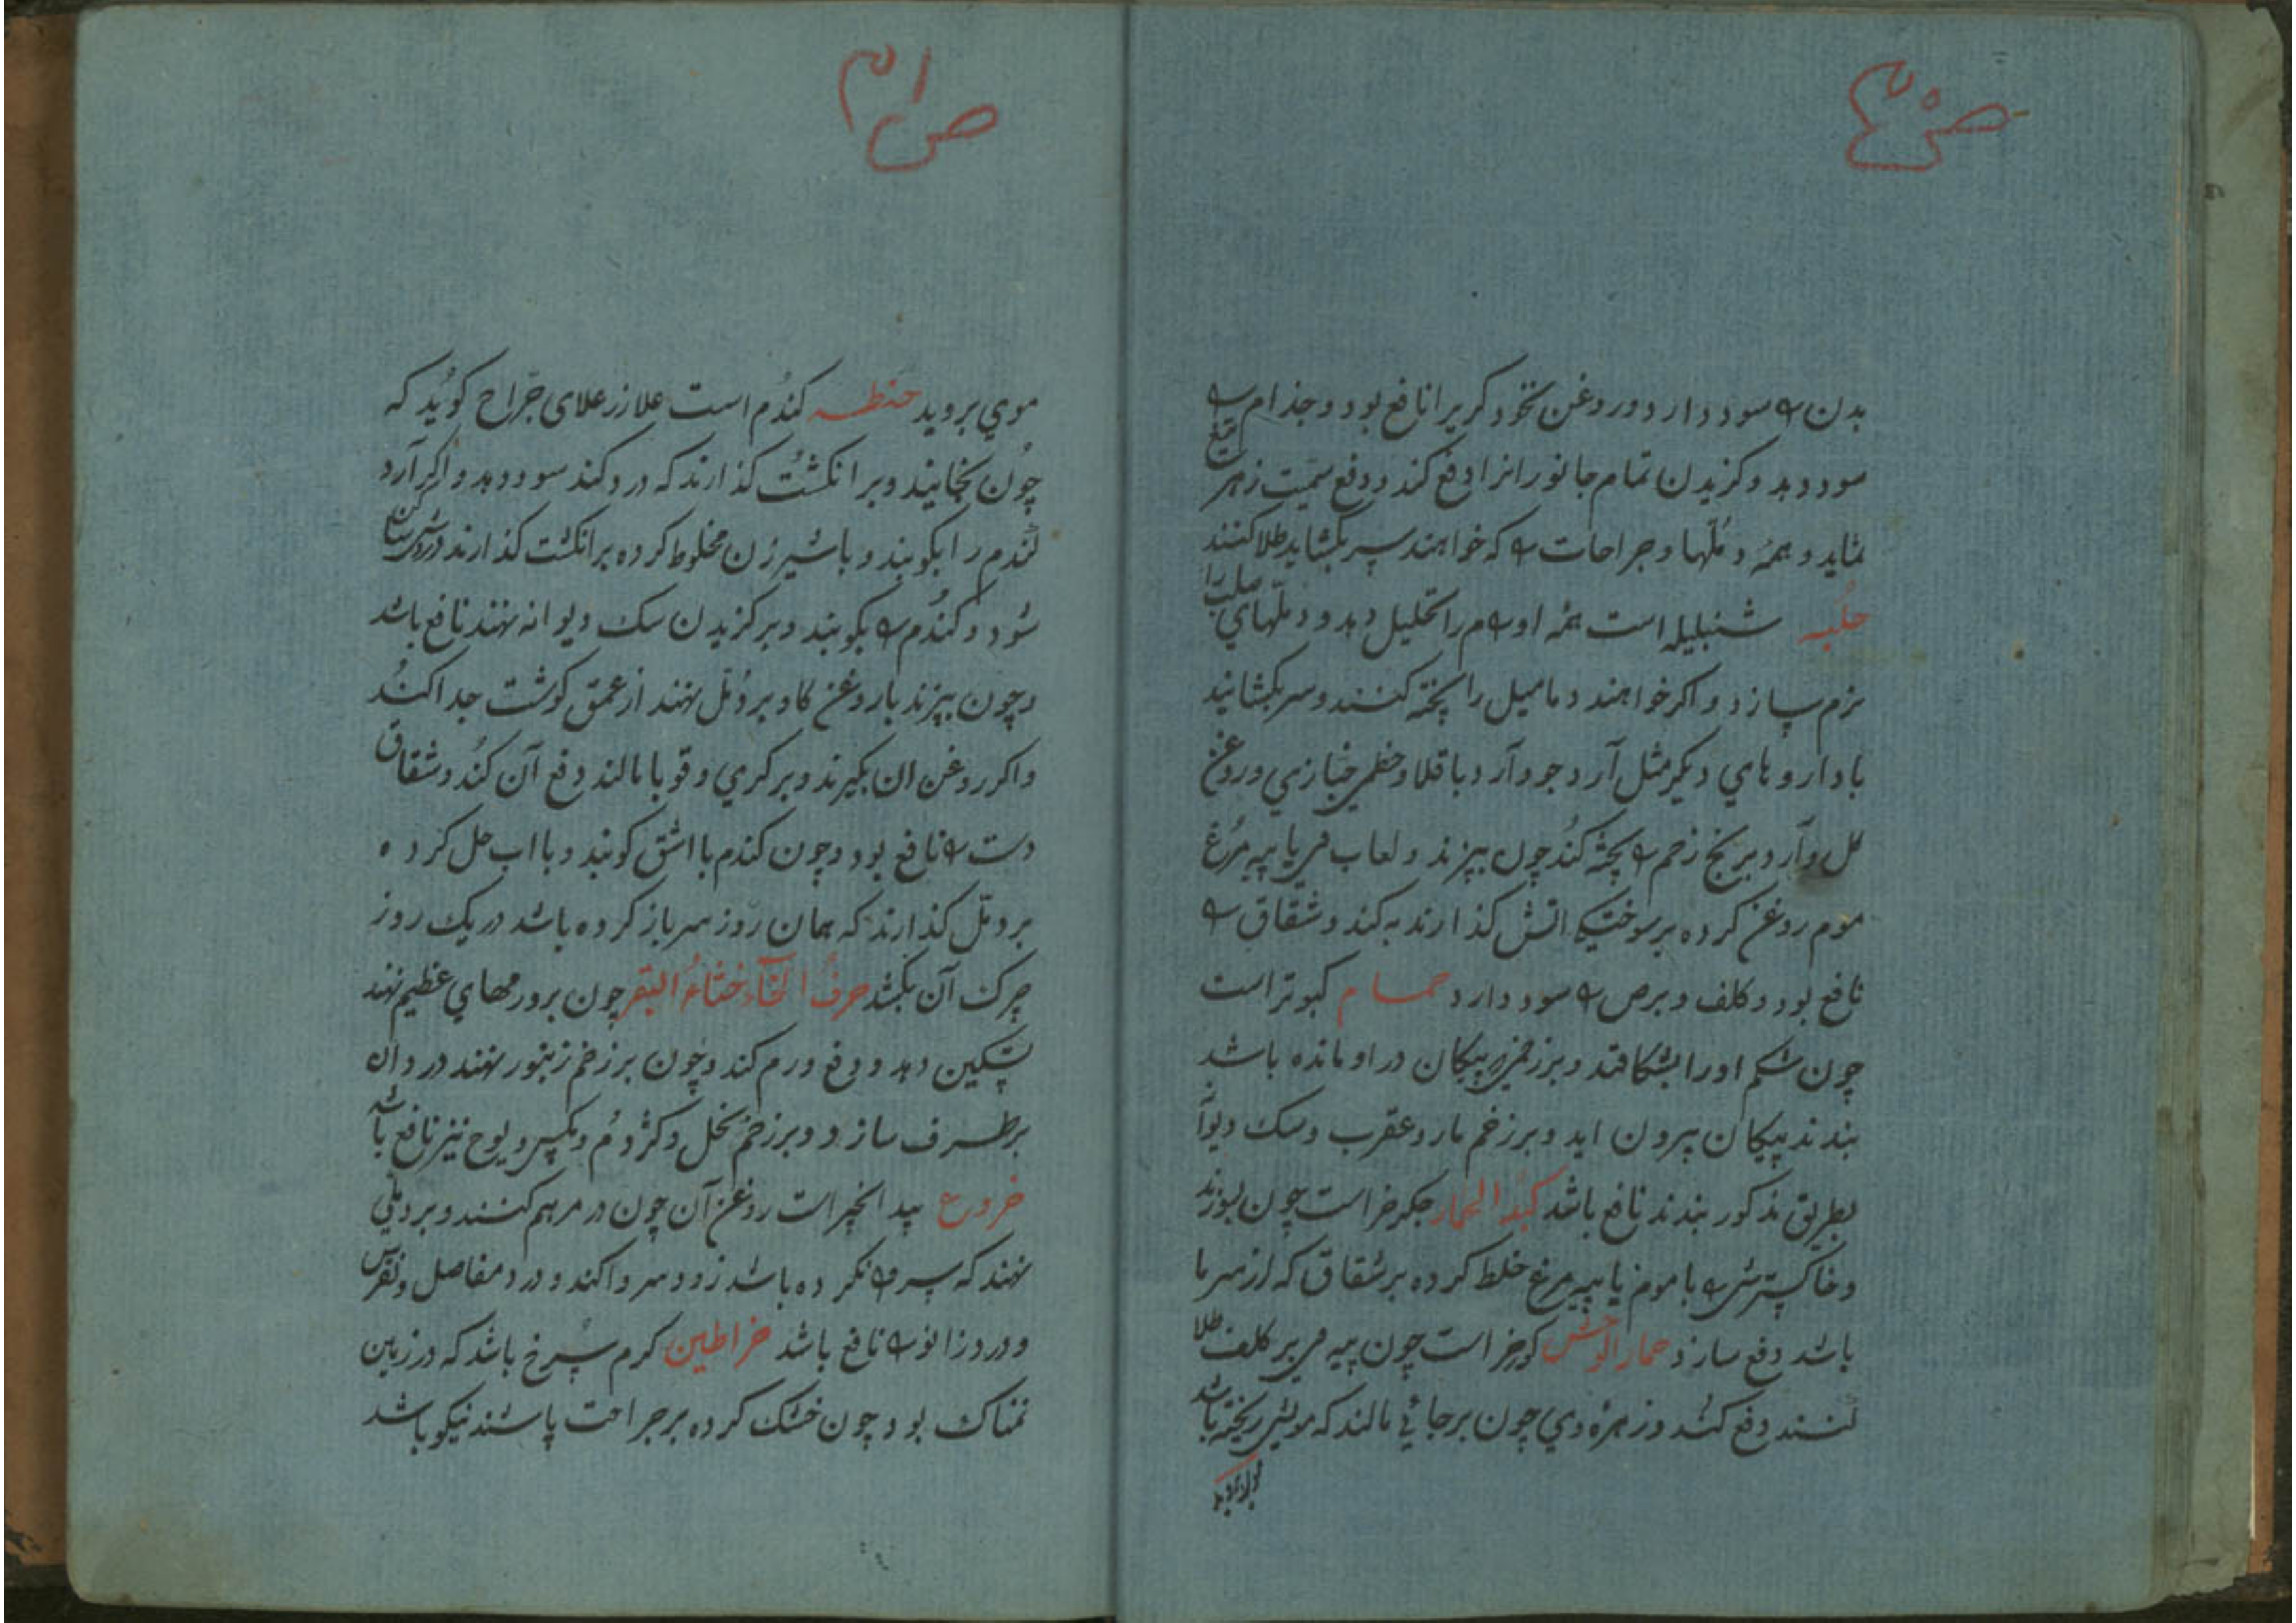 ص۴۰
بدن را سود دارد و روغن نخود کریرا نافع بود و جذام را
سود دهد و کزیدن تمام جانورانرا دفع کند و دفع سمیت زهر تیغ
نماید و همه دملها و جراحات را که خواهند سر بکشاید طلا کنند
حلبه شنبلیله است همه اورام را تحلیل دهد و دملهای صلب را
نرم سازد و اکر خواهند دمامیل را پخته کنند و سر بکشانید
با داروهای دیکر مثل آرد جو و آرد باقلا و خطمی خبازی و روغن
کل و آرد برنج زخم را پخته کند چون بپزند و لعاب وی با پیه مرغ
موم روغن کرده بر سوختیکا اتش کذارند به کند و شقاق را
نافع بود و کلف و برص را سود دارد حمام کبوتر است
چون شکم او را بشکافند و بر زخمی که پیکان در او مانده باشد
بندند پیکان بیرون اید و بر زخم مار و عقرب و سک دیوا
بطریق مذکور بندند نافع باشد کبد الحمار جکر خر است چون بسوزند
و خاکسترش را با موم یا پیه مرغ خلط کرده بر شقاق که از سرما
باشد دفع سازد حمار الوحش کورخر است چون پیه وی بر کلف طلا
کنند دفع کند و زهره وی چون بر جائی مالند که مویش ریخته باشد
ص۴۱
موی بروید حنطه کندم است علازر علای جراح کوید که
چون بخایند و بر انکشت کذارند که درد کند سود دهد و اکر آرد
کندم را بکوبند و با شیر زن مخلوط کرده بر انکشت کذارند دردش ساکن
شود و کندم را بکوبند و بر کزیدن سک دیوانه نهند نافع باشد
و چون بپزند با روغن کاو بر دمل نهند از عمق کوشت جدا کند
و اکر روغن ان بکیرند و بر کری و قوبا مالند دفع آن کند و شقاق
دست را نافع بود و چون کندم با اشق کوبند و با اب حل کرده
بر دمل کذارند که همان روز سر باز کرده باشد در یک روز
چرک آن بکشد حرف الخآء خثاء البقر چون بر ورمهای عظیم نهند
تسکین دهد و دفع ورم کند و چون بر زخم زنبور نهند درد ان
برطرف سازد و بر زخم نحل و کژدم و مکس نیز نافع باشد
خروع بید انجیر است روغن آن چون در مرهم کنند و بر دملی
نهند که سر وا نکرده باشد زود سر وا کند و درد مفاصل و نقرس
و درد زانو را نافع باشد خراطین کرم سرخ باشد که در زمین
نمناک بود چون خشک کرده بر جراحت پاشند نیکو باشد